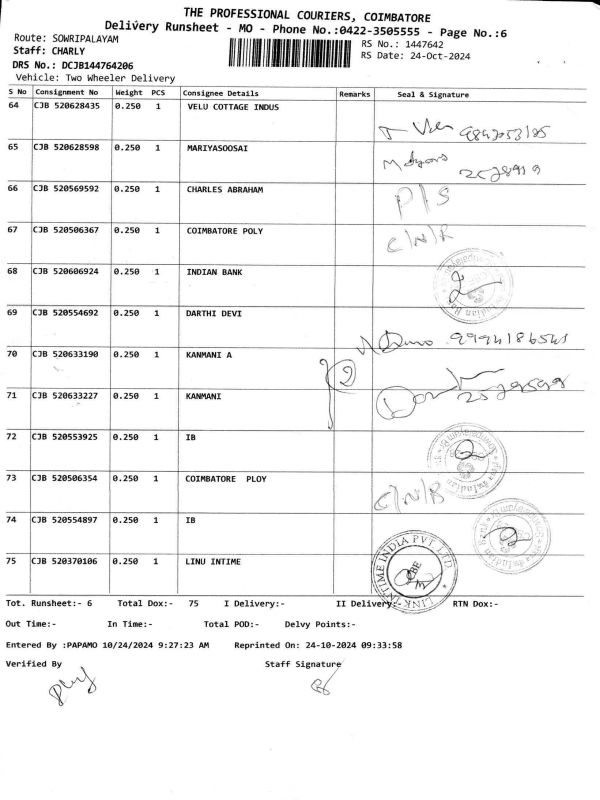 THE PROFESSIONAL COURIERS, COIMBATORE
Delivery Runsheet - MO - Phone No.:0422-3505555 - Page No.:6
Route: SOWRIPALAYAM
RS No.: 1447642
Staff: CHARLY
RS Date: 24-Oct-2024
DRS No.: DCJB144764206
Vehicle: Two Wheeler Delivery
S No Consignment No Weight PCS Consignee Details Remarks Seal & Signature
64 CJB 520628435 0.250 1 VELU COTTAGE INDUS
65 CJB 520628598 0.250 1 MARIYASOOSAI
66 CJB 520569592 0.250 1 CHARLES ABRAHAM P/S
67 CJB 520506367 0.250 1 COIMBATORE POLY C/N/R
68 CJB 520606924 0.250 1 INDIAN BANK
69 CJB 520554692 0.250 1 DARTHI DEVI
70 CJB 520633190 0.250 1 KANMANI A
71 CJB 520633227 0.250 1 KANMANI
72 CJB 520553925 0.250 1 IB
73 CJB 520506354 0.250 1 COIMBATORE PLOY
74 CJB 520554897 0.250 1 IB
75 CJB 520370106 0.250 1 LINU INTIME
LINK INTIME INDIA PVT LTD
Tot. Runsheet:- 6 Total Dox:- 75 I Delivery:- II Delivery:- RTN Dox:-
Out Time:- In Time:- Total POD:- Delvy Points:-
Entered By :PAPAMO 10/24/2024 9:27:23 AM Reprinted On: 24-10-2024 09:33:58
Verified By Staff Signature